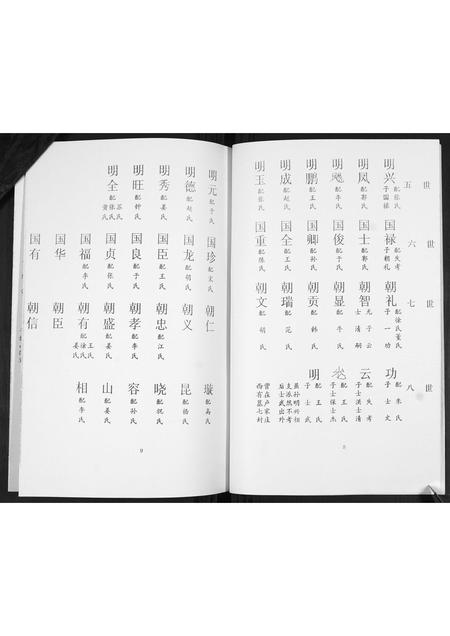 五世
明兴 配张氏 子国禄
明凤 配郭氏
明飏 配李氏
明鹏 配王氏
明成 配赵氏
明玉 配张氏
六世
国禄 配失考 子朝礼
国士 配郭氏
国俊 配于氏
国卿 配孙氏
国全 配王氏
国重 配陈氏
七世
朝礼 配徐氏董氏 子一功
朝智 尤氏 子云 士清嗣
朝显 配牛氏
朝贡 配韩氏
朝瑞 配范氏
朝文 配胡氏
八世
功 配朱氏 子士文
云 配失考 子士洪士清
配王氏 子士保士杰
明 配王氏 子士武
虽孙明兴相
支派然不考
后士武出外
营在卢家庄
西有墓七封
8
明元 配于氏
明德 配赵氏
明秀 配姜氏
明旺 配钟氏
明全 配张氏 黄氏
国珍 配宋氏
国龙 配胡氏
国臣 配王氏
国良 配于氏
国贞 配张氏
国福 配李氏
国华
国有
朝仁
朝义
朝忠 配江氏
朝孝 配李氏
朝盛 配姜氏
朝有 配徐氏 王氏 姜氏
朝臣
朝信
璇 配高氏
昆 配杨氏
晓 配祝氏
容 配孙氏
山 配姜氏
相 配李氏
9